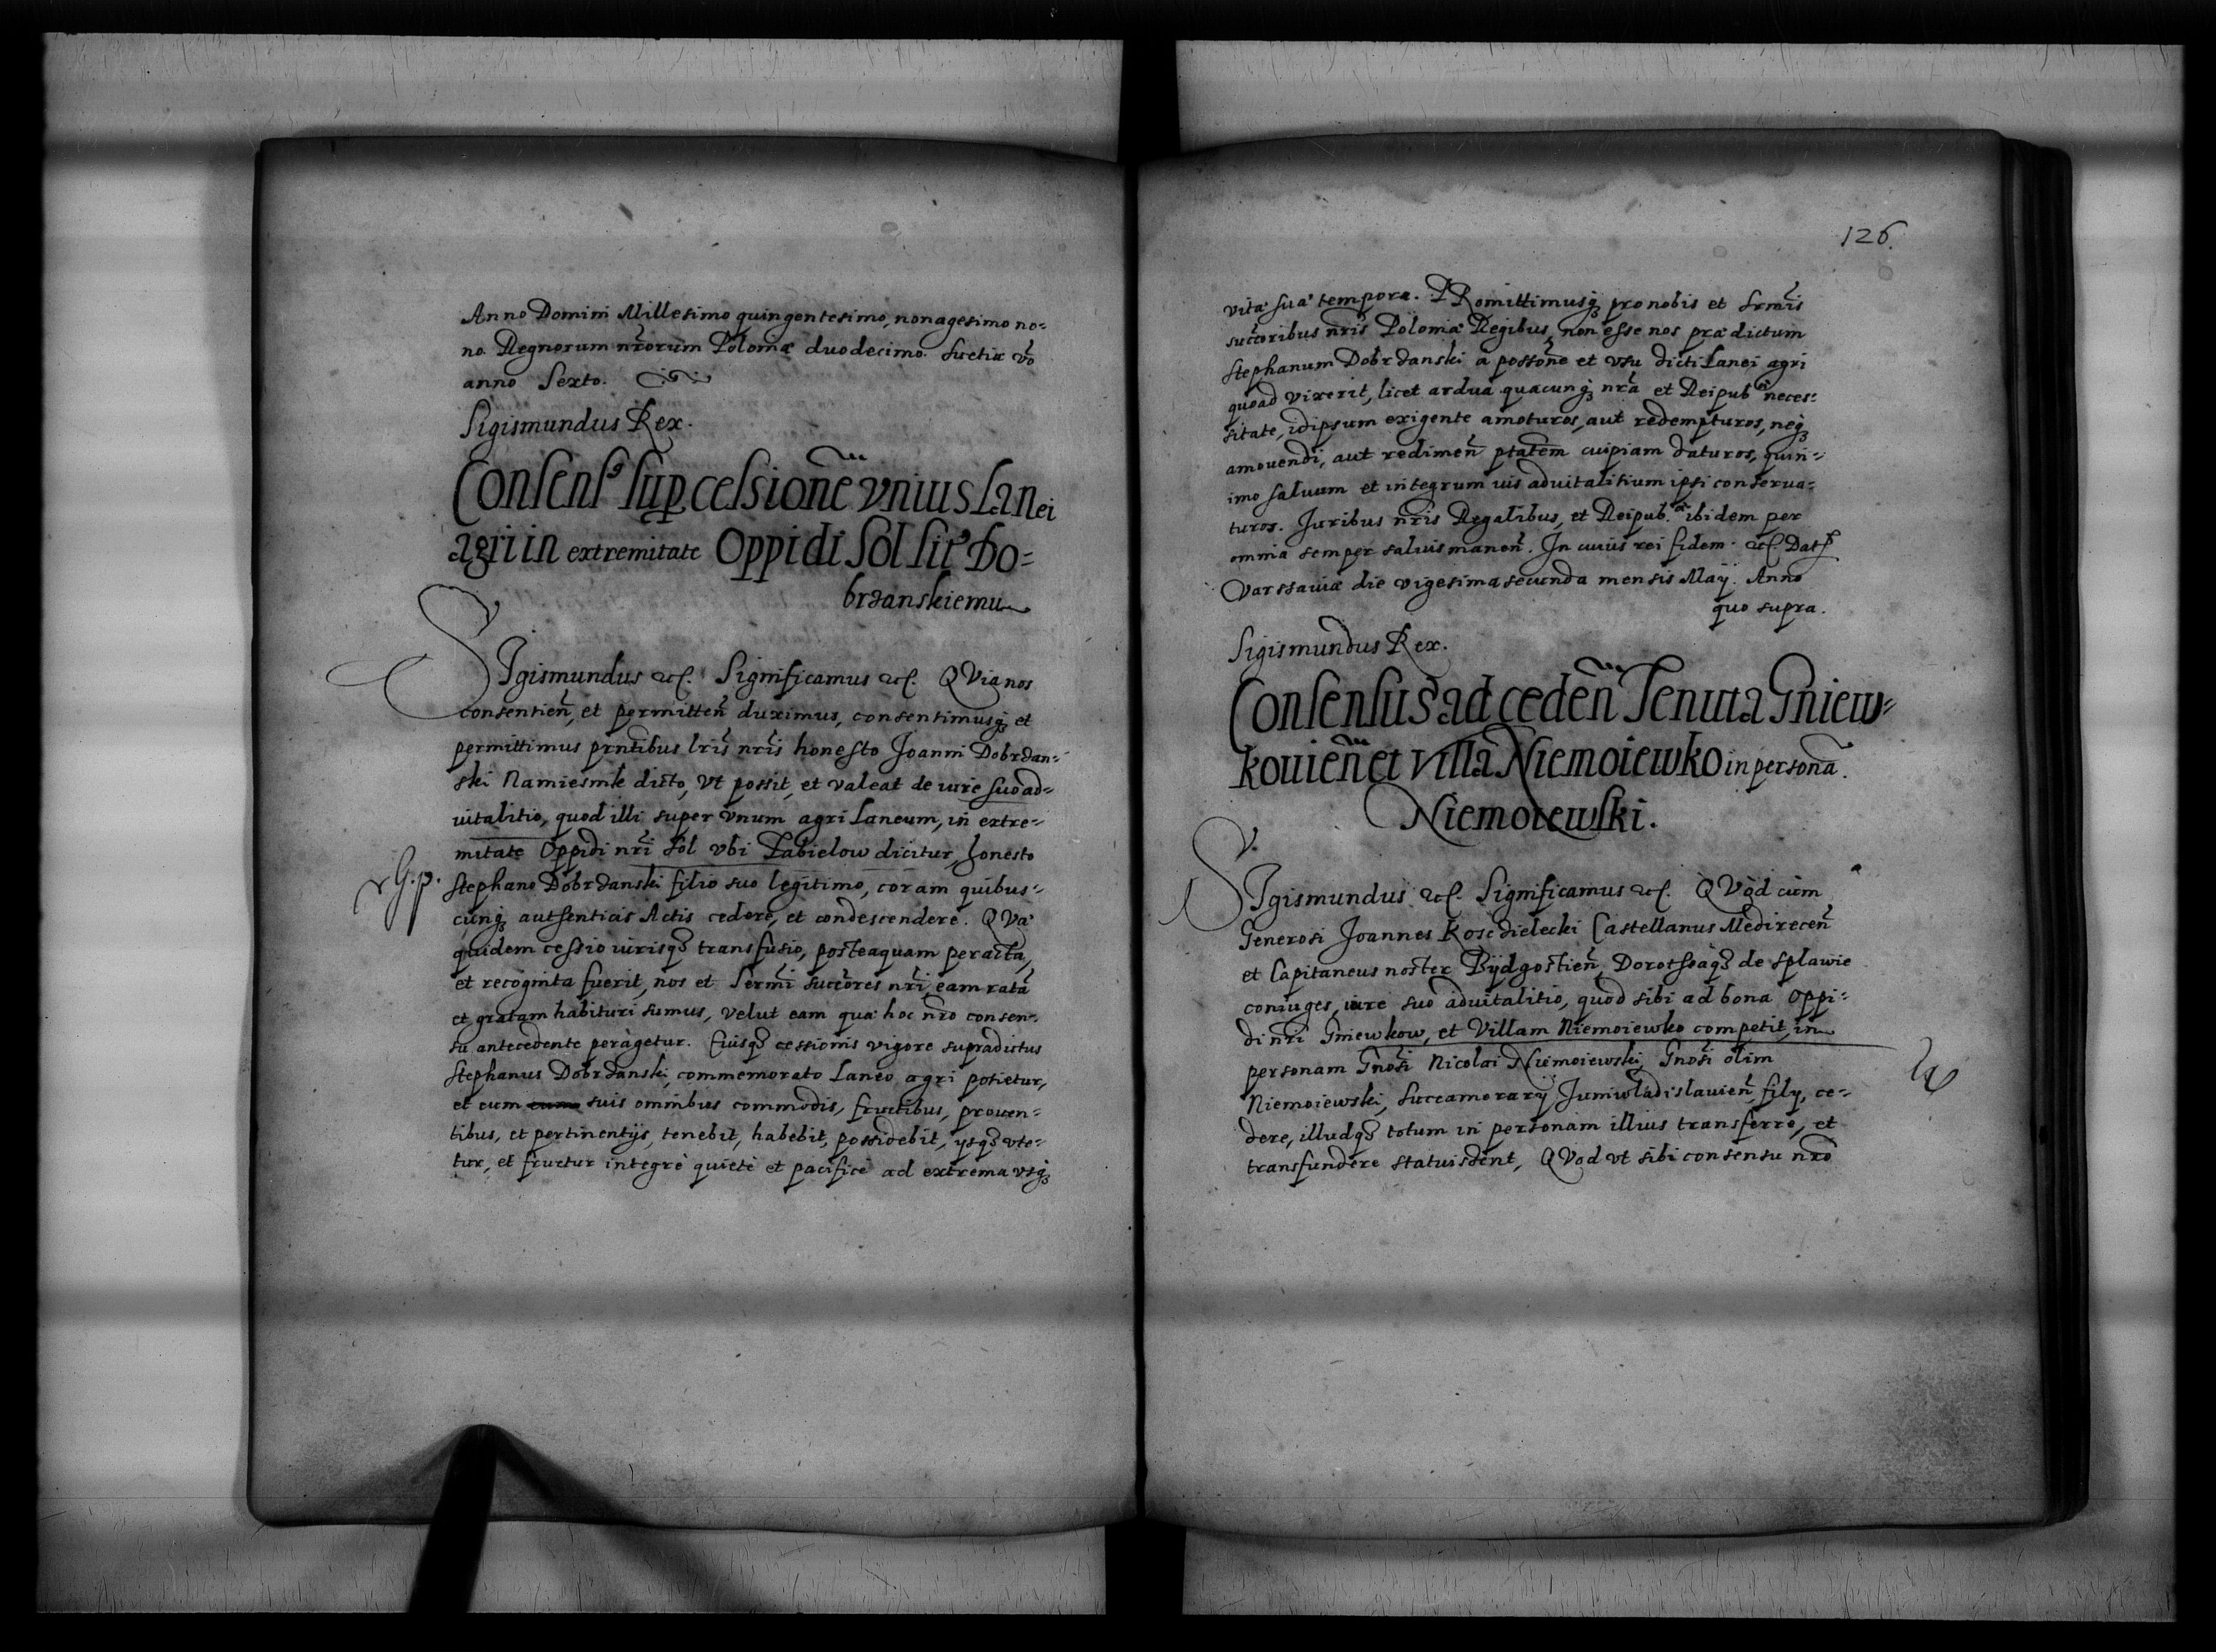 Anno Domini Millesimo quingentesimo, nonagesimo no=
no. Regnorum nrorum Poloniæ duodecimo. Suetiæ vo
anno Sexto.
Sigismundus Rex.
Consens9 sup cessione vnius Lanei
agri in extremitate Oppidi Sol sit9 Do=
brzanskiemu
SIgismundus etc. Significamus etc. QVia nos
consentien, et permitten duximus, consentimusq3 et
permittimus prntibus lris nris honesto Joanni Dobrzan=
ski Namiesnik dicto, vt possit, et valeat de iure suo ad=
uitalitio, quod illi super vnum agri Laneum, in extre=
mitate Oppidi nri Sol vbi Pabielow dicitur, honesto
Stephano Dobrzanski filio suo legitimo, coram quibus=
cunq3 autsenticis Actis cedere, et condescendere. QVa
quidem cessio iurisq3 transfusio, posteaquam peracta,
et recognita fuerit, nos et Sermi succores nri, eam rata
et gratam habituri sumus, velut eam qua hoc nro consen=
su antecedente peragetur. Cuiusq3 cessionis vigore supradictus
Stephanus Dobrzanski, commemorato Laneo agri potietur,
et cum suis omnibus commodis, fructibus, prouen=
tibus, et pertinentijs, tenebit, habebit, possidebit, ysq3 vte=
tur, et fruetur integre quiete et pacifice ad extrema vsq3
G.p.
126.
vitæ suæ tempora. PRomittimusq3 pro nobis et Srmis
succoribus nris Poloniæ Regibus, non esse nos prædictum
Stephanum Dobrzanski a possone et vsu dicti Lanei agri
quoad vixerit, licet ardua quacunq3 nra et Reipub neces=
sitate, idipsum exigente amoturos, aut redempturos, neq3
amouendi, aut redimen ptatem cuipiam daturos, quin=
imo saluum et integrum ius aduitalitium ipsi conserua=
turos. Juribus nris Regalibus, et Reipub. ibidem per
omnia semper saluis manen. In cuius rei fidem etc. Dat
Varssauiæ die vigesima secunda mensis Maij. Anno
quo supra.
Sigismundus Rex.
Consensus ad ceden Tenuta Gniew=
kouien et villa Niemoiewko in persona.
Niemoiewski.
SIgismundus etc. Significamus etc. QVod cum
Generosi Joannes Koscielecki Castellanus Medirecen
et Capitaneus noster Bydgostien, Dorotheaq3 de Splawie
coniuges, iure suo aduitalitio, quod sibi ad bona Oppi=
di nri Gniewkow, et Villam Niemoiewko competit, in
personam Gnosi Nicolai Niemoiewski, Gnosi olim
Niemoiewski, Succamerarij Juniwladislauien, filij, ce=
dere, illudq3 totum in personam illius transferre, et
transfundere statuissent, QVod vt sibi consensu nro